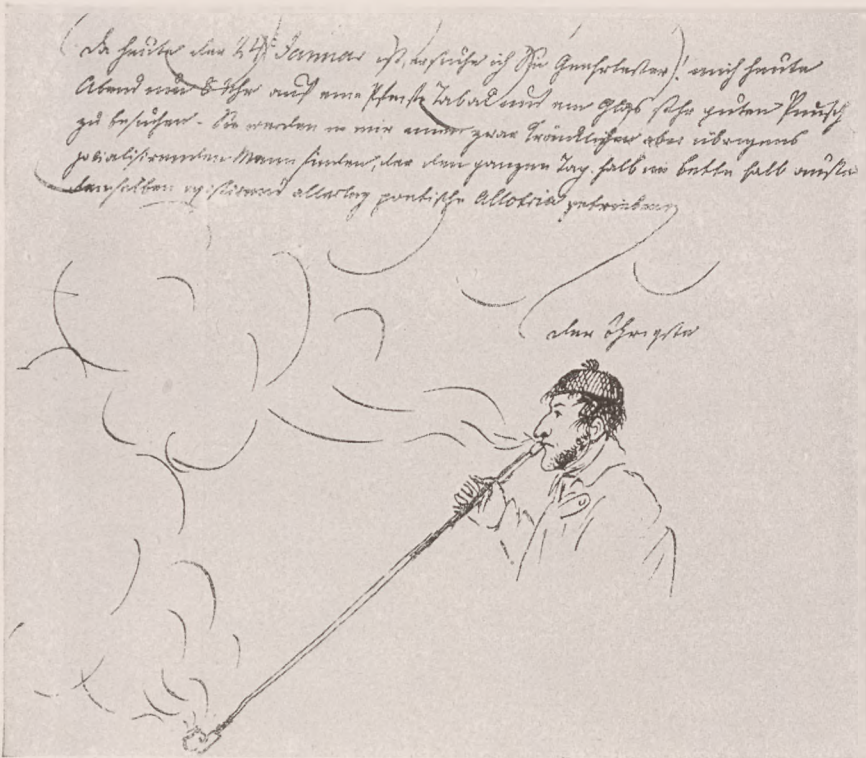 Da heute der 24te Januar ist, ersuche ich Sie Geehrtester! mich heute
Abend um 8 Uhr auf eine Pfeife Tabak und ein Glas sehr guten Punsch
zu besuchen - Sie werden in mir einen zwar kränklichen aber übrigens
jovialisirenden Mann finden, der den ganzen Tag halb im Bette halb außer
demselben existirend allerley poetische Allotria getrieben
Der Ihrigste